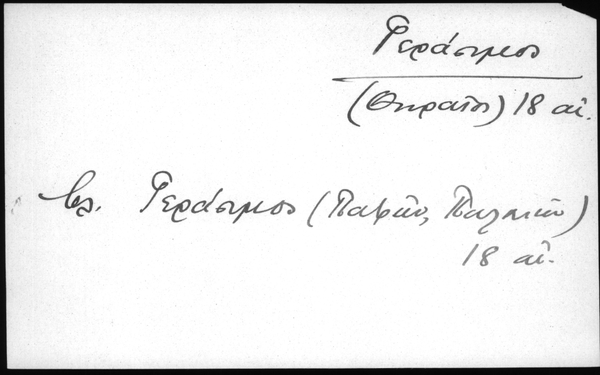 Γεράσιμος
(Θηραῖος) 18 αἰ.
βλ. Γεράσιμος (Παφῖος, Παλαιῶν)
18 αἰ.